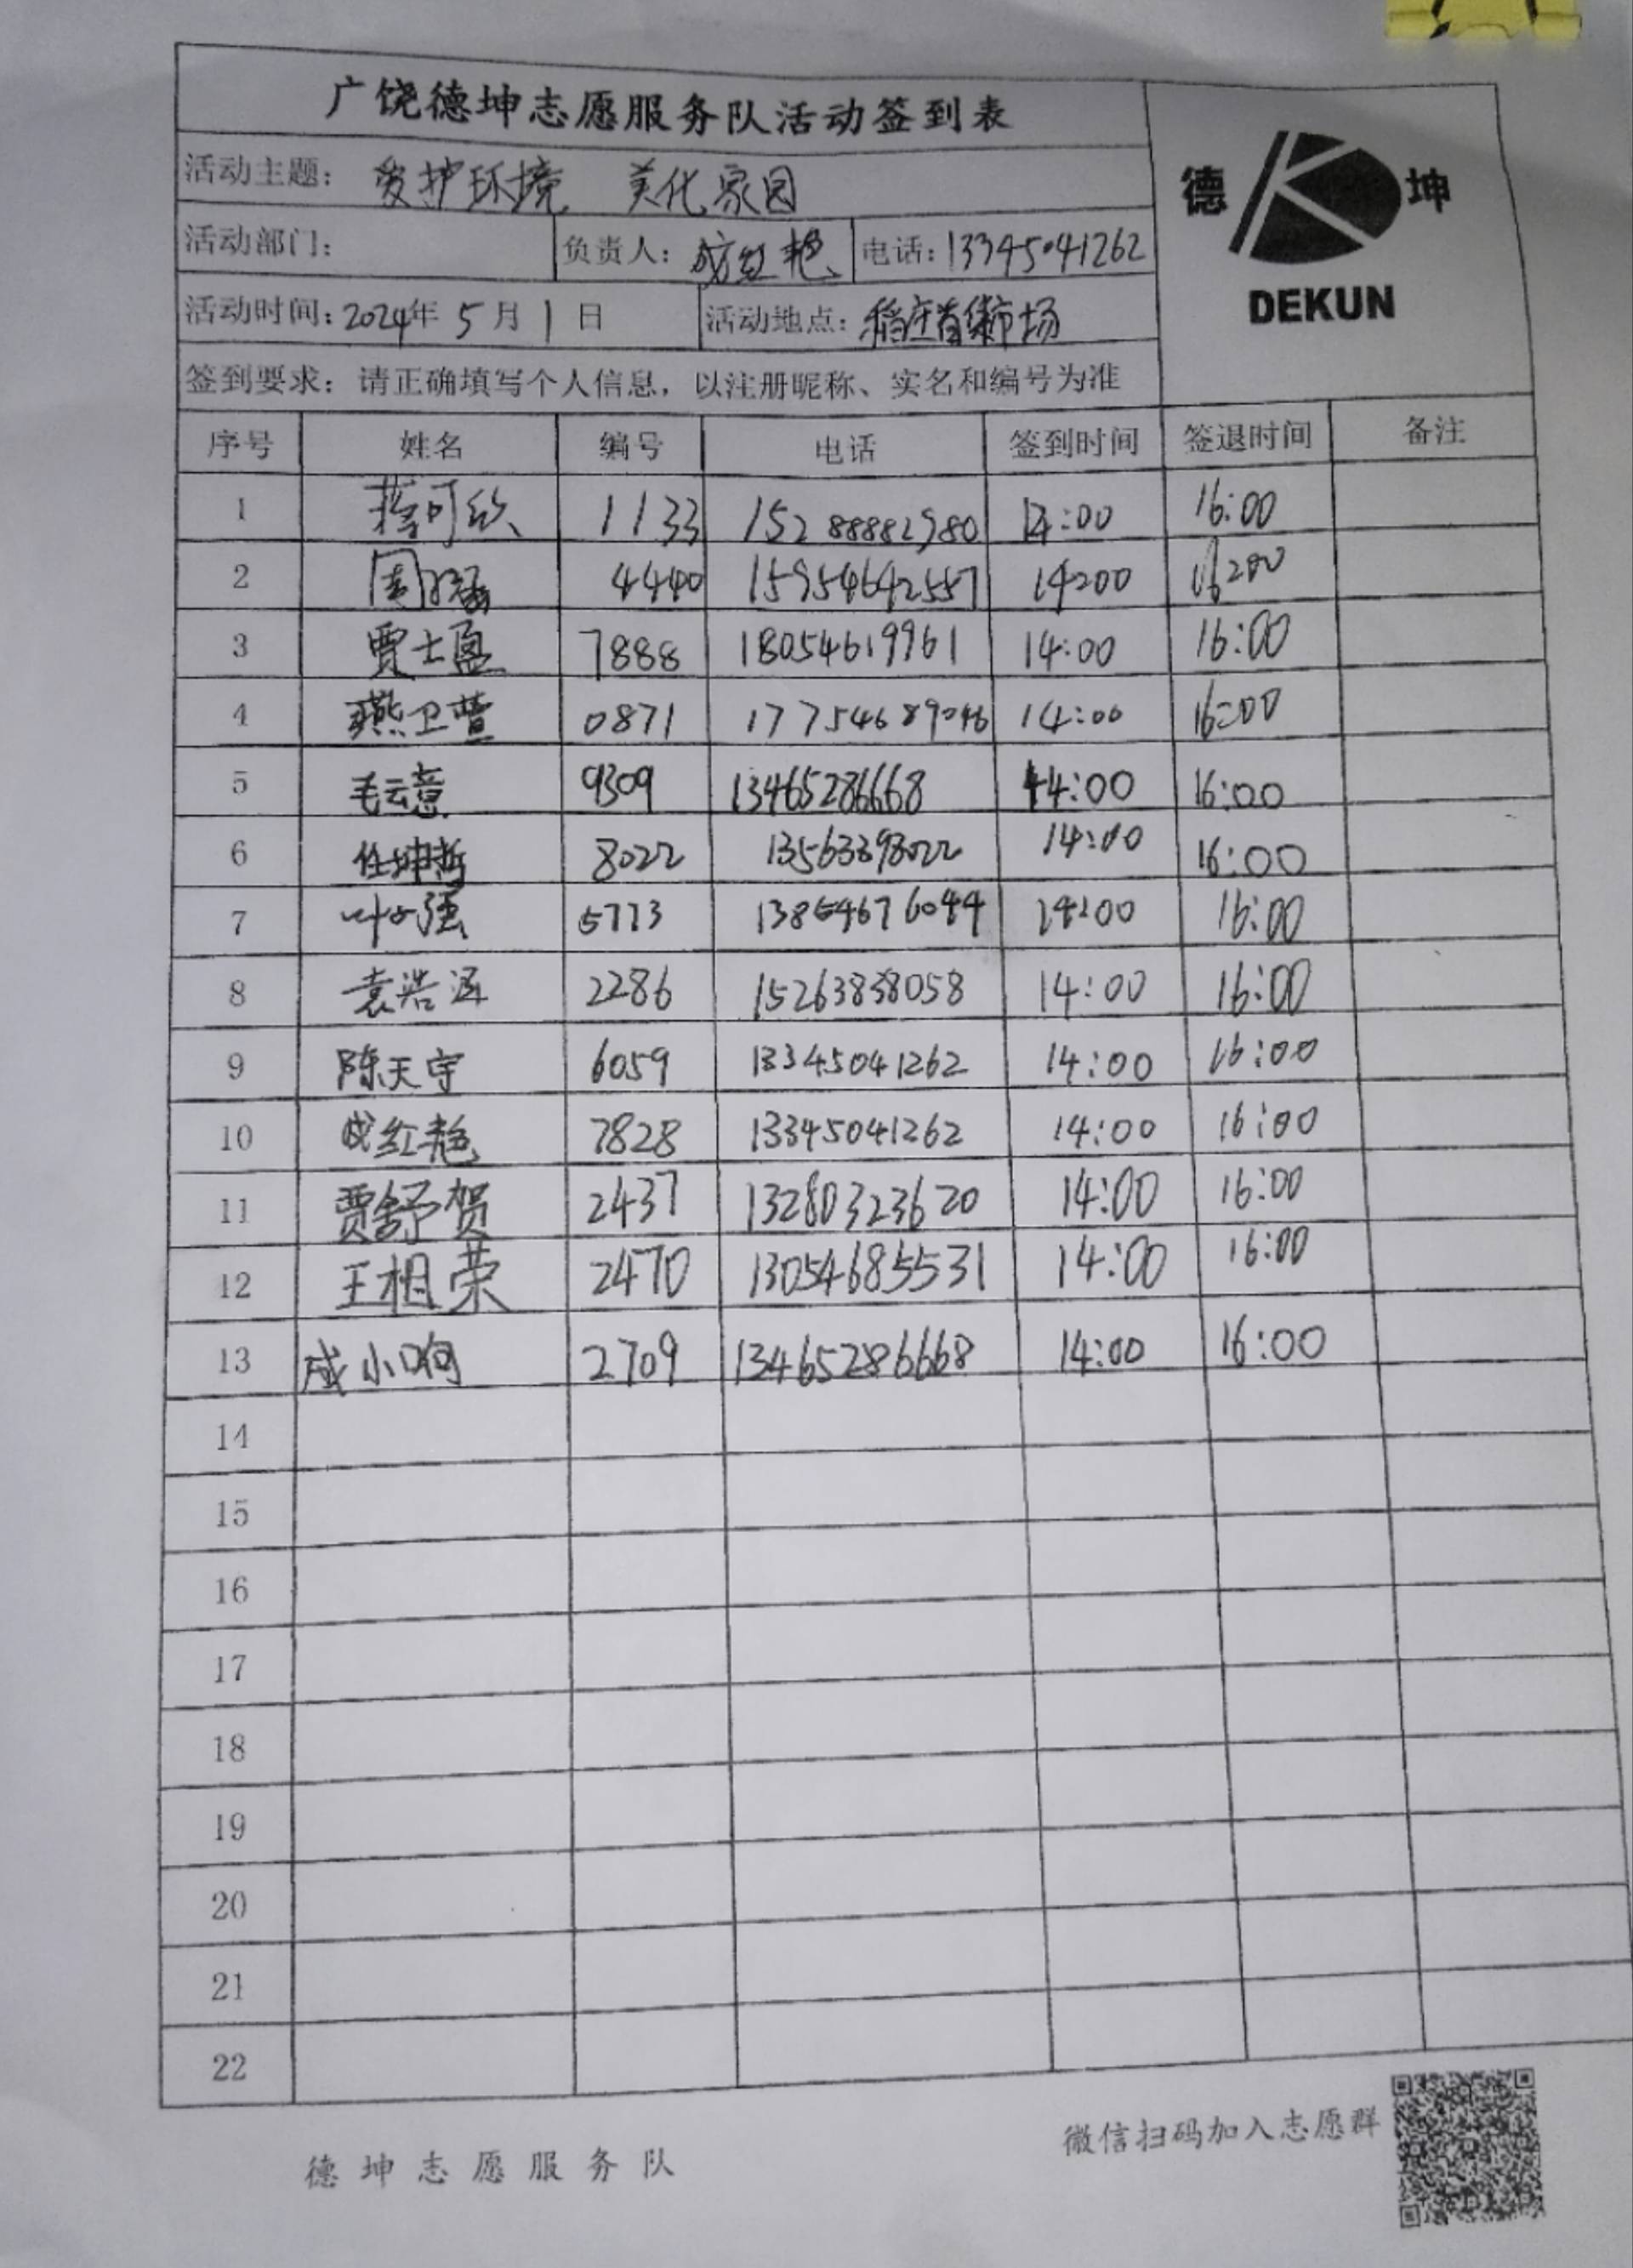 广饶德坤志愿服务队活动签到表
德 坤
DEKUN
活动主题： 爱护环境 美化家园
活动部门： 负责人： 红艳 电话：13345041262
活动时间：2024年 5 月 1 日 活动地点：稻庄 市场
签到要求：请正确填写个人信息，以注册昵称、实名和编号为准
序号 姓名 编号 电话 签到时间 签退时间 备注
1 可欣 1133 15288882980 14:00 16:00
2 周 4440 15954642557 14:00 16:00
3 贾士盈 7888 18054619961 14:00 16:00
4 燕卫 0871 17754689046 14:00 16:00
5 毛云意 9309 13465286668 14:00 16:00
6 任坤哲 8022 13563393022 14:00 16:00
7 叶 强 5773 13854676044 14:00 16:00
8 袁浩 2286 15263838058 14:00 16:00
9 陈天宇 6059 13345041262 14:00 16:00
10 红艳 7828 13345041262 14:00 16:00
11 贾舒贺 2437 13280323620 14:00 16:00
12 王相荣 2470 13054685531 14:00 16:00
13 小 2709 13465286668 14:00 16:00
14
15
16
17
18
19
20
21
22
德坤志愿服务队
微信扫码加入志愿群